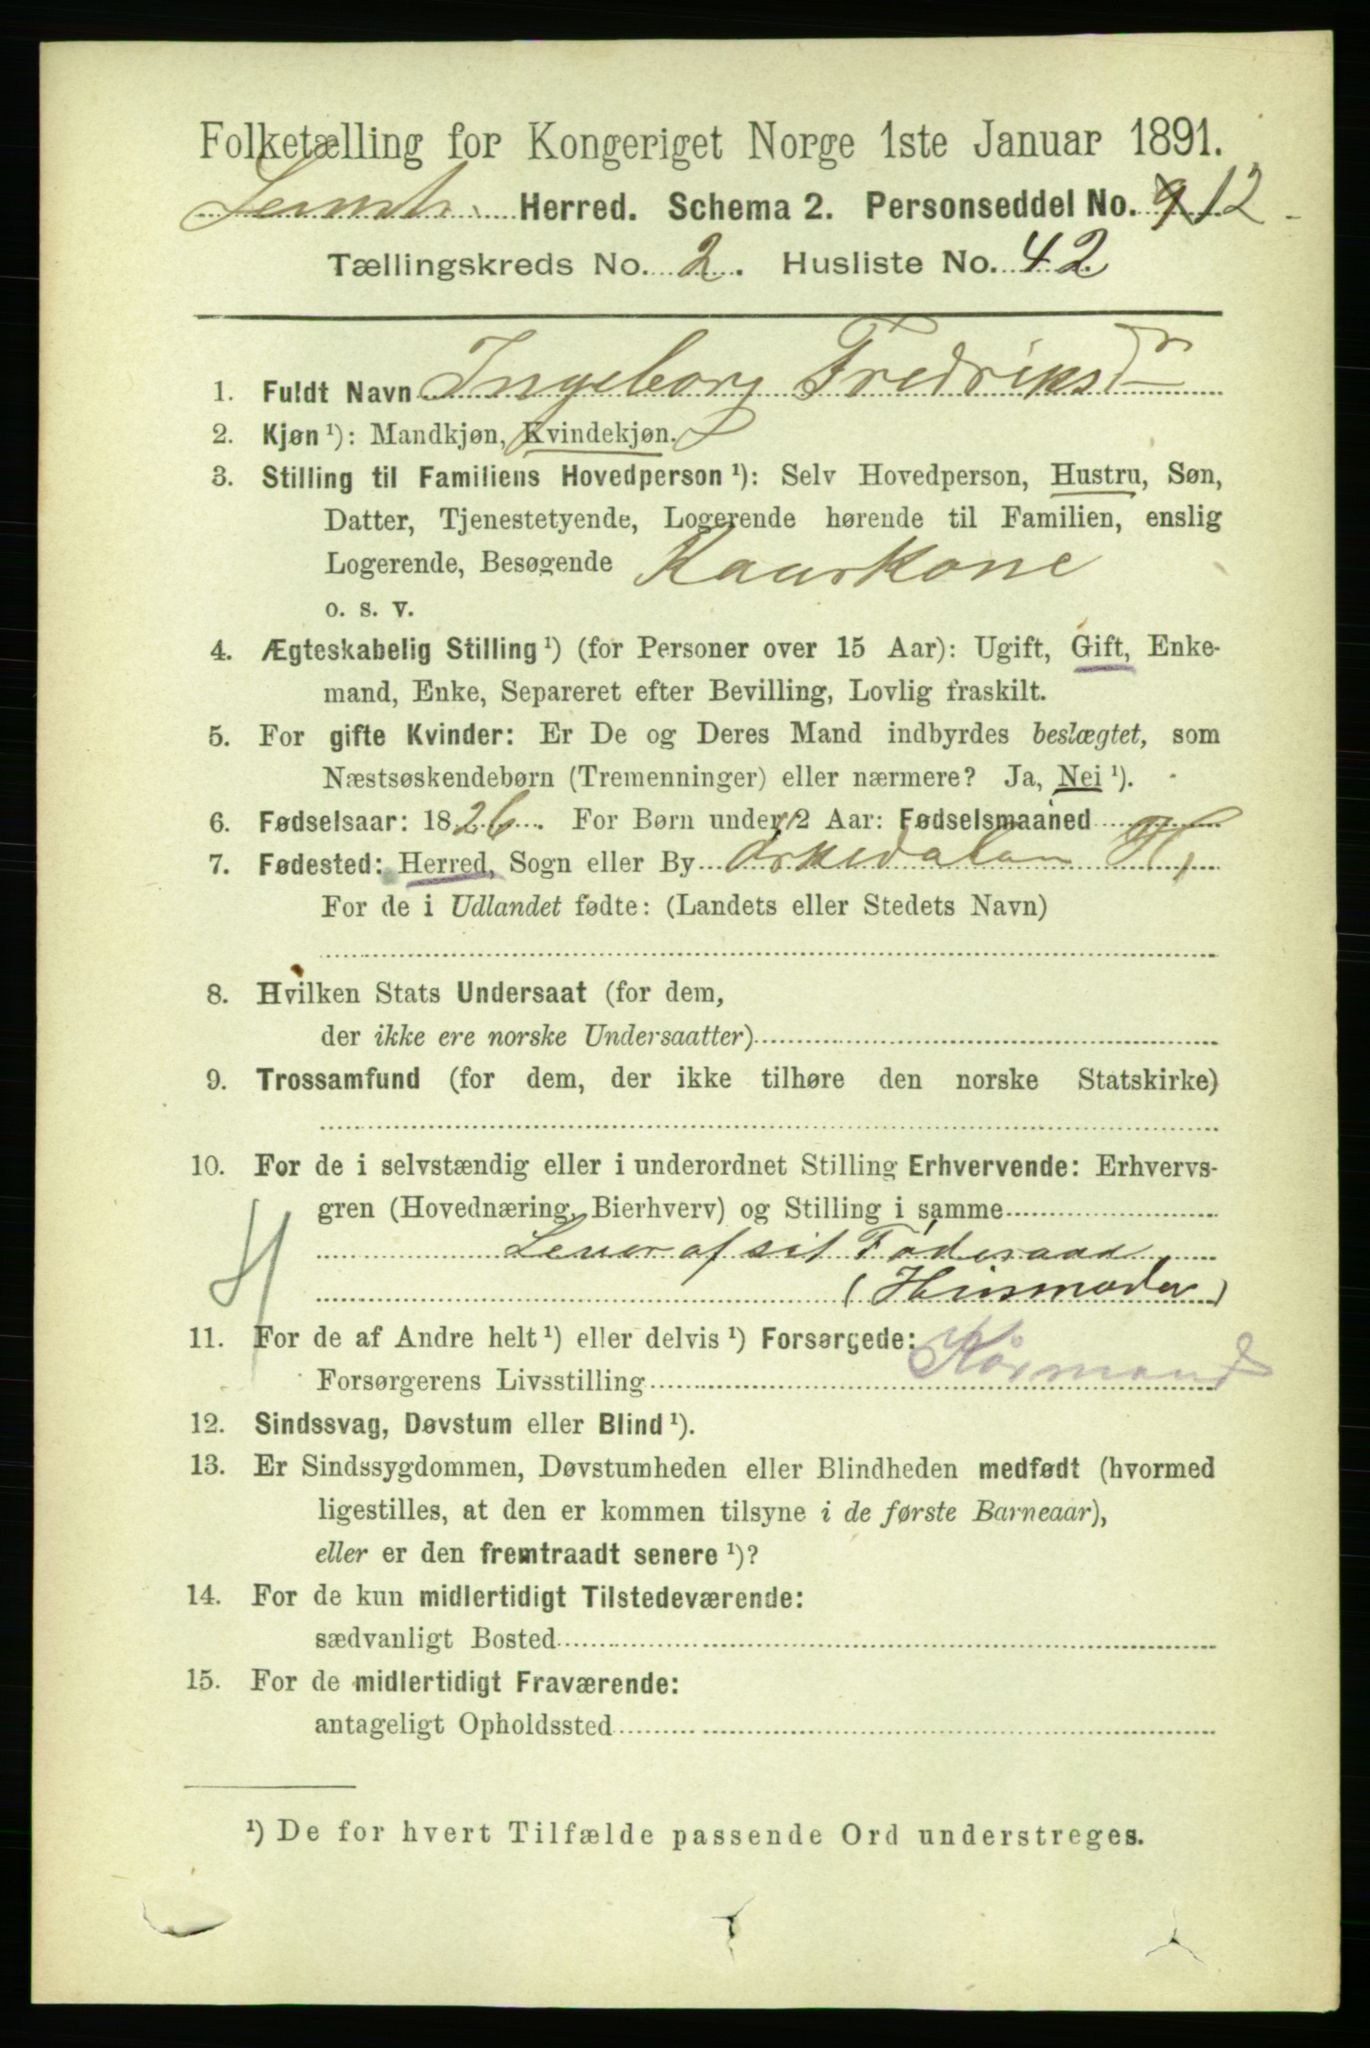 Folketælling for Kongeriget Norge 1ste Januar 1891.
Herred. Schema 2. Personseddel No. 9 12
Tællingskreds No. 2. Husliste No. 42
1. Fuldt Navn Ingeborg Fredriksdr
2. Kjøn ¹): Mandkjøn, Kvindekjøn.
3. Stilling til Familiens Hovedperson ¹): Selv Hovedperson, Hustru, Søn,
Datter, Tjenestetyende, Logerende hørende til Familien, enslig
Logerende, Besøgende Kaarkone
o. s. v.
4. Ægteskabelig Stilling ¹) (for Personer over 15 Aar): Ugift, Gift, Enke-
mand, Enke, Separeret efter Bevilling, Lovlig fraskilt.
5. For gifte Kvinder: Er De og Deres Mand indbyrdes beslægtet, som
Næstsøskendebørn (Tremenninger) eller nærmere? Ja, Nei ¹).
6. Fødselsaar: 1826. For Børn under 2 Aar: Fødselsmaaned
7. Fødested: Herred, Sogn eller By Orkedalen H,
For de i Udlandet fødte: (Landets eller Stedets Navn)
8. Hvilken Stats Undersaat (for dem,
der ikke ere norske Undersaatter)
9. Trossamfund (for dem, der ikke tilhøre den norske Statskirke)
10. For de i selvstændig eller i underordnet Stilling Erhvervende: Erhvervs-
gren (Hovednæring, Bierhverv) og Stilling i samme
Lever af sit Føderaad
H (Husmoder)
11. For de af Andre helt ¹) eller delvis ¹) Forsørgede:
Forsørgerens Livsstilling Kårmand
12. Sindssvag, Døvstum eller Blind ¹).
13. Er Sindssygdommen, Døvstumheden eller Blindheden medfødt (hvormed
ligestilles, at den er kommen tilsyne i de første Barneaar),
eller er den fremtraadt senere ¹)?
14. For de kun midlertidigt Tilstedeværende:
sædvanligt Bosted
15. For de midlertidigt Fraværende:
antageligt Opholdssted
¹) De for hvert Tilfælde passende Ord understreges.